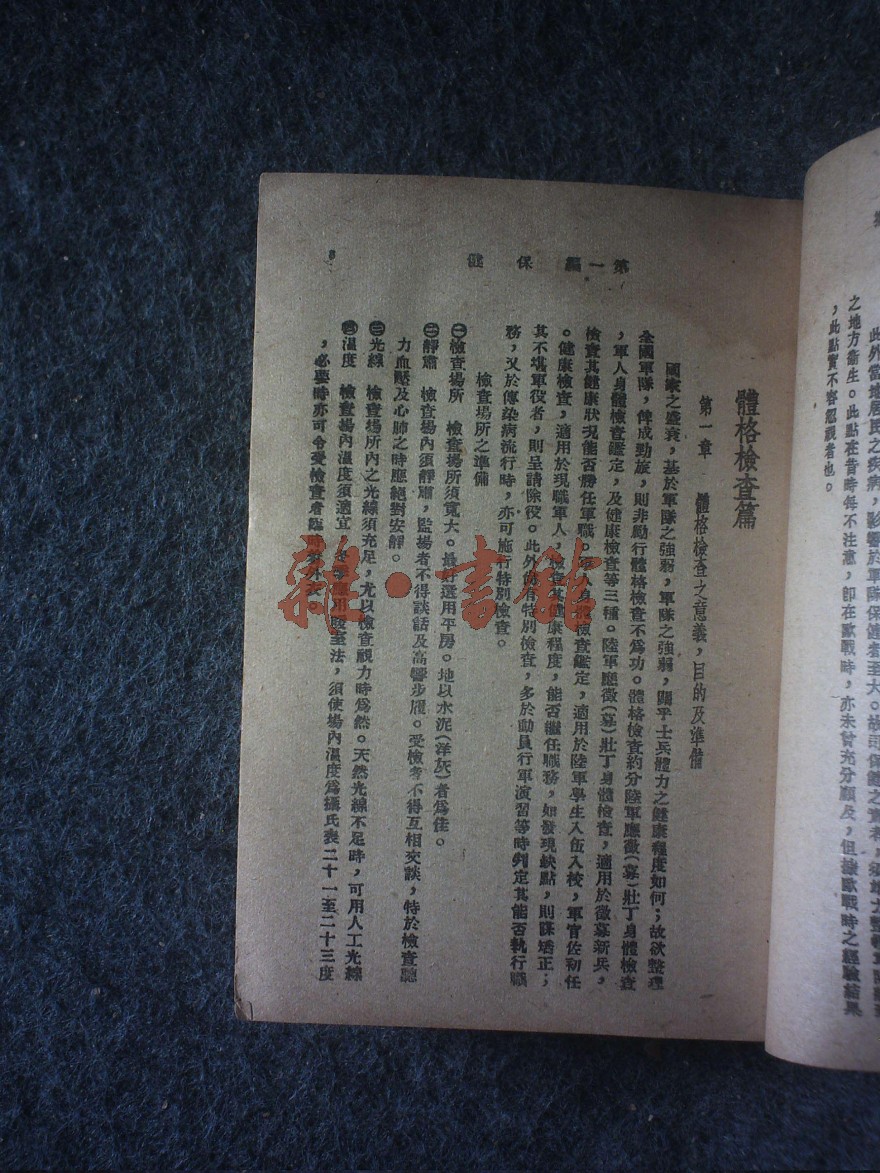 此外當地居民之疾病，影響於軍隊保健者至大。故司保健之責者，須
之地方衞生。此點在昔時每不注意，卽在歐戰時，亦未曾充分顧及，但據歐戰時之經驗結果
，此點實不容忽視者也。
第一編 保健
3
體格檢查篇
第一章 體格檢查之意義，目的及準備
國家之盛衰，基於軍隊之強弱，軍隊之強弱，關乎士兵體力之健康程度如何；故欲整理
全國軍隊，俾成勁旅，則非勵行體格檢查不爲功。體格檢查約分陸軍應徵(募)壯丁身體檢查
，軍人身體檢查鑑定，及健康檢查等三種。陸軍應徵(募)壯丁身體檢查，適用於徵募新兵，
檢查其健康狀況能否勝任軍職，軍人身體檢查鑑定，適用於陸軍學生入伍入校，軍官佐初任
。健康檢查，適用於現職軍人，檢查其健康程度，能否繼任職務，如發現缺點，則謀矯正；
其不堪軍役者，則呈請除役。此外尙有特別檢查，多於動員行軍演習等時判定其能否執行職
務，又於傳染病流行時，亦可施行特別檢查。
檢查場所之準備
㊀檢查場所 檢查場所須寬大。最好選用平房。地以水泥(洋灰)者爲佳。
㊁靜肅 檢查場內須靜肅，監場者不得談話及高響步履。受檢者不得互相交談，特於檢查聽
力血壓及心肺之時應絕對安靜。
㊂光線 檢查場所內之光線須充足，尤以檢查視力時爲然。天然光線不足時，可用人工光線
㊃溫度 檢查場內溫度須適宜，冬季應用暖室法，須使場內溫度爲攝氏表二十一至二十三度
，必要時亦可令受檢查者臨時外衣
雜·書館